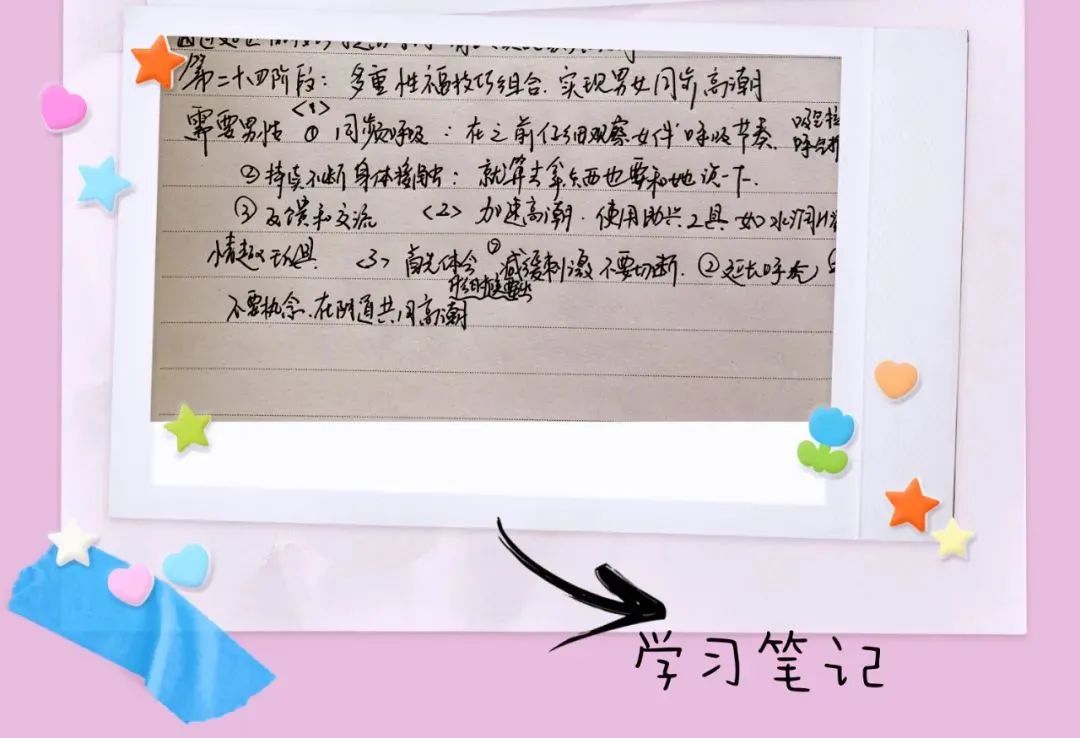 第二十四阶段：多重性福技巧组合.实现男女同步高潮
需要男性 <1> ① 同频呼吸：在之前仔细观察女伴呼吸节奏.
②持续不断身体接触：就算去拿东西也要和她说一下.
③ 反馈和交流 <2> 加速高潮.使用助兴工具 如水润
情趣玩具 <3> 首先体会 ① 减缓刺激 不要切断. ②延长呼吸
不要执念.在阴道共同高潮
学习笔记